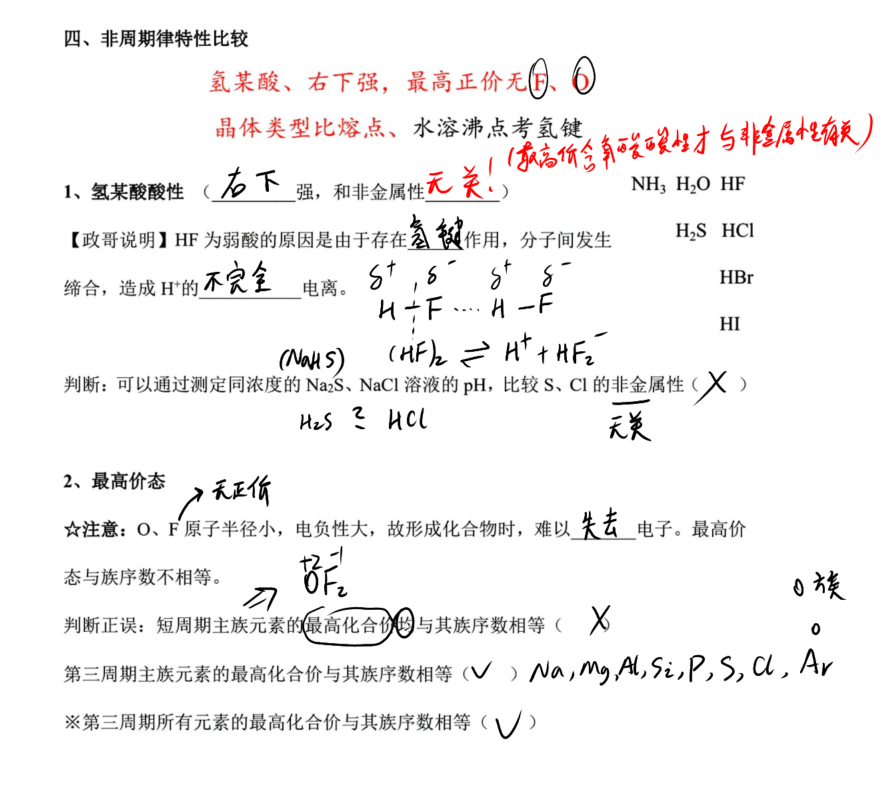 四、非周期律特性比较
氢某酸、右下强，最高正价无F、O
晶体类型比熔点、水溶沸点考氢键
(最高价含氧酸酸性才与非金属性有关)
1、氢某酸酸性 （右下强，和非金属性无关!）
NH₃ H₂O HF
【政哥说明】HF 为弱酸的原因是由于存在氢键作用，分子间发生
H₂S HCl
缔合，造成 H⁺的不完全电离。
δ⁺ δ⁻ δ⁺ δ⁻
HBr
H－F····H－F
HI
(NaHS) (HF)₂ ⇌ H⁺ + HF₂⁻
判断：可以通过测定同浓度的 Na₂S、NaCl 溶液的 pH，比较 S、Cl 的非金属性（ X ）
H₂S ? HCl 无关
2、最高价态
→ 无正价
☆注意：O、F 原子半径小，电负性大，故形成化合物时，难以失去电子。最高价
态与族序数不相等。
+2 -1
OF₂
0族
判断正误：短周期主族元素的最高化合价均与其族序数相等（ X ）
0
第三周期主族元素的最高化合价与其族序数相等（ √ ） Na, Mg, Al, Si, P, S, Cl, Ar
※第三周期所有元素的最高化合价与其族序数相等（ √ ）